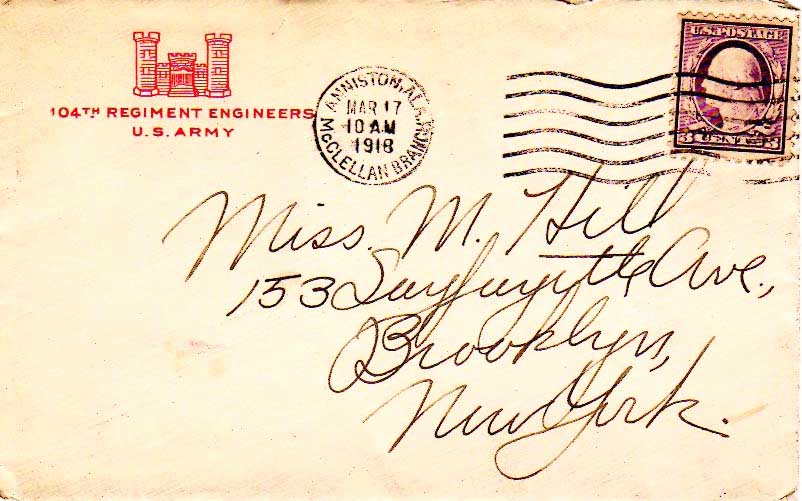 104TH REGIMENT ENGINEERS
U.S. ARMY
ANNISTON, ALA.
MAR 17
10 AM
1918
McCLELLAN BRANCH
U.S. POSTAGE
3 CENTS 3
Miss. M. Hill
153 Layfayette Ave.,
Brooklyn,
New York.